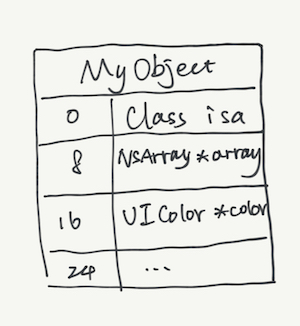 MyObject
0 Class isa
8 NSArray *array
16 UIColor *color
24 ...